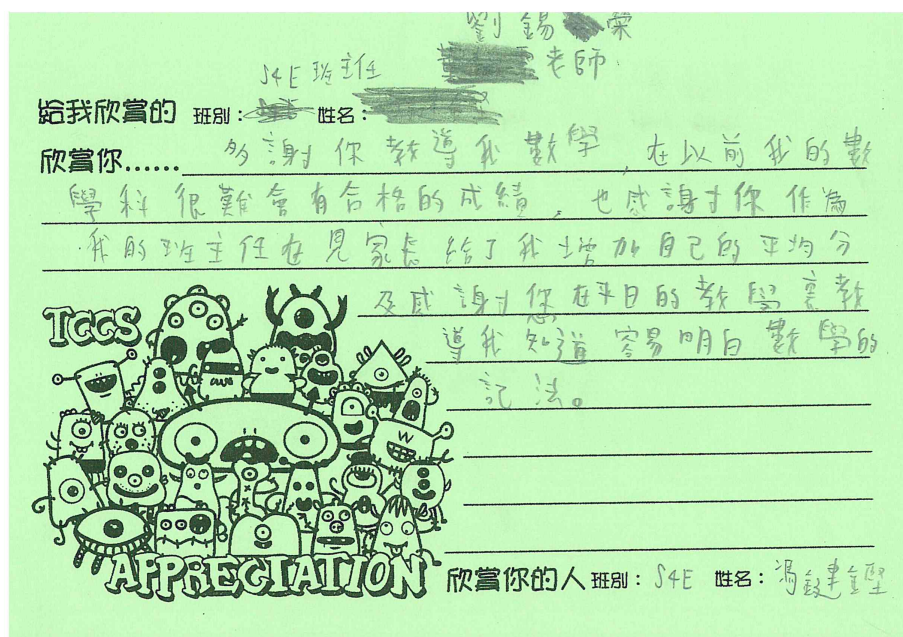 劉錫榮
老師
S4E 班主任
給我欣賞的 班別: 姓名:
欣賞你...... 多謝你教導我數學,在以前我的數
學科很難會有合格的成績,也感謝你作為
我的班主任在見家長給了我增加自己的平均分
及感謝您在平日的教學裏教
導我知道容易明白數學的
記法。
TCCS
APPRECIATION
欣賞你的人 班別: S4E 姓名: 馮鍵鏗